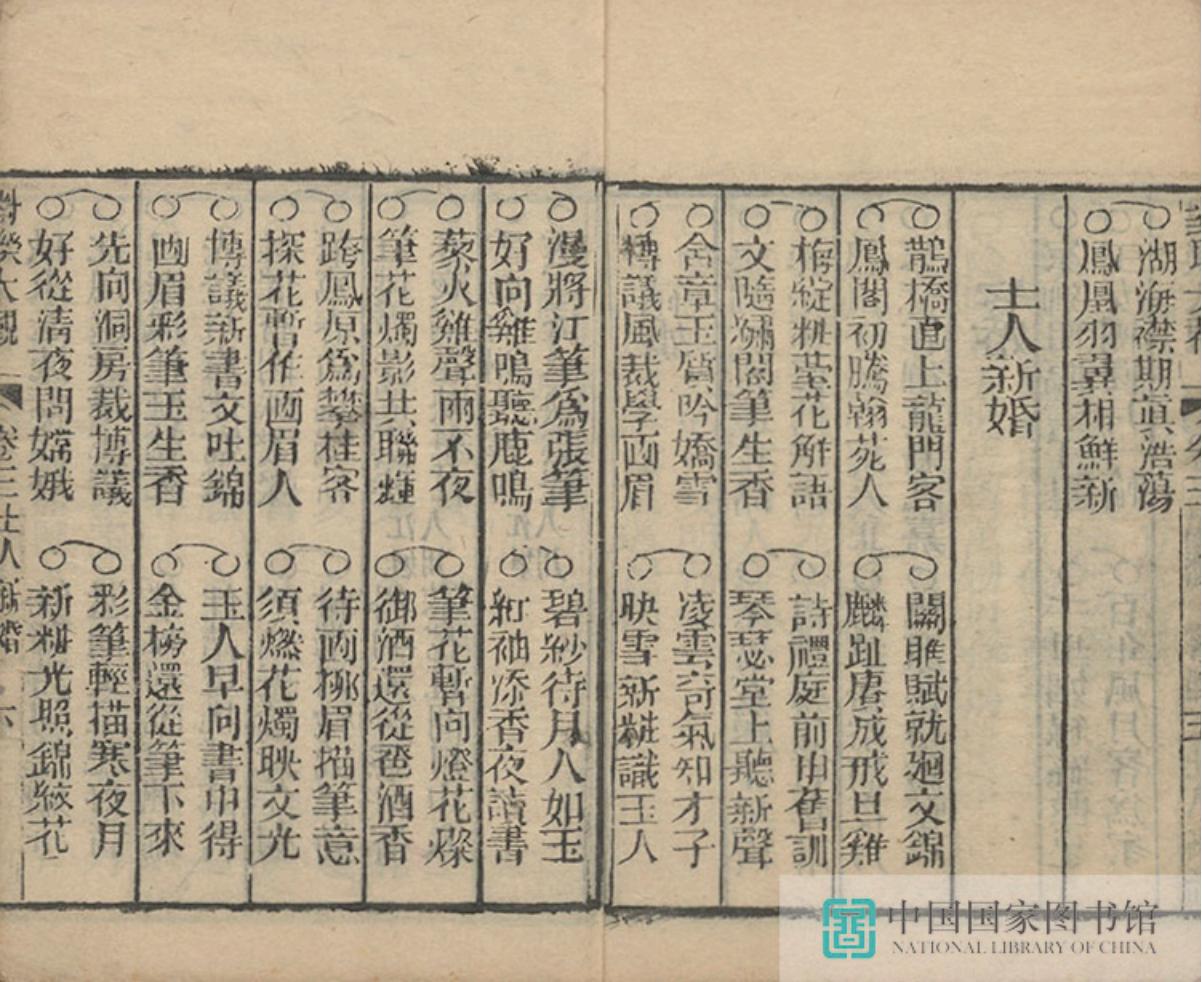 湖海襟期真浩蕩
鳳凰羽翼相鮮新
士人新婚
鵲橋直上龍門客
鳳閣初騰翰苑人
關雎賦就廻文錦
麟趾唐成戒旦雞
梅綻粧臺花解語
文隨繡閣筆生香
詩禮庭前申舊訓
琴瑟堂上聽新聲
含章玉質吟嬌雪
博議風裁學画眉
凌雲奇氣知才子
映雪新粧識玉人
漫將江筆為張筆
好向雞鳴聽鹿鳴
碧紗待月人如玉
紅袖添香夜讀書
藜火雞聲雨不夜
筆花燭影共聯輝
筆花暫向燈花燦
御酒還從卺酒香
跨鳳原為攀桂客
探花暫作画眉人
待画柳眉描筆意
須燃花燭映文光
博議新書文吐錦
画眉彩筆玉生香
玉人早向書中得
金榜還從筆下來
先向洞房裁博議
好從清夜問嫦娥
彩筆輕描寒夜月
新粧光照錦紋花
卷三士人新婚 六
中国国家图书馆
NATIONAL LIBRARY OF CHINA